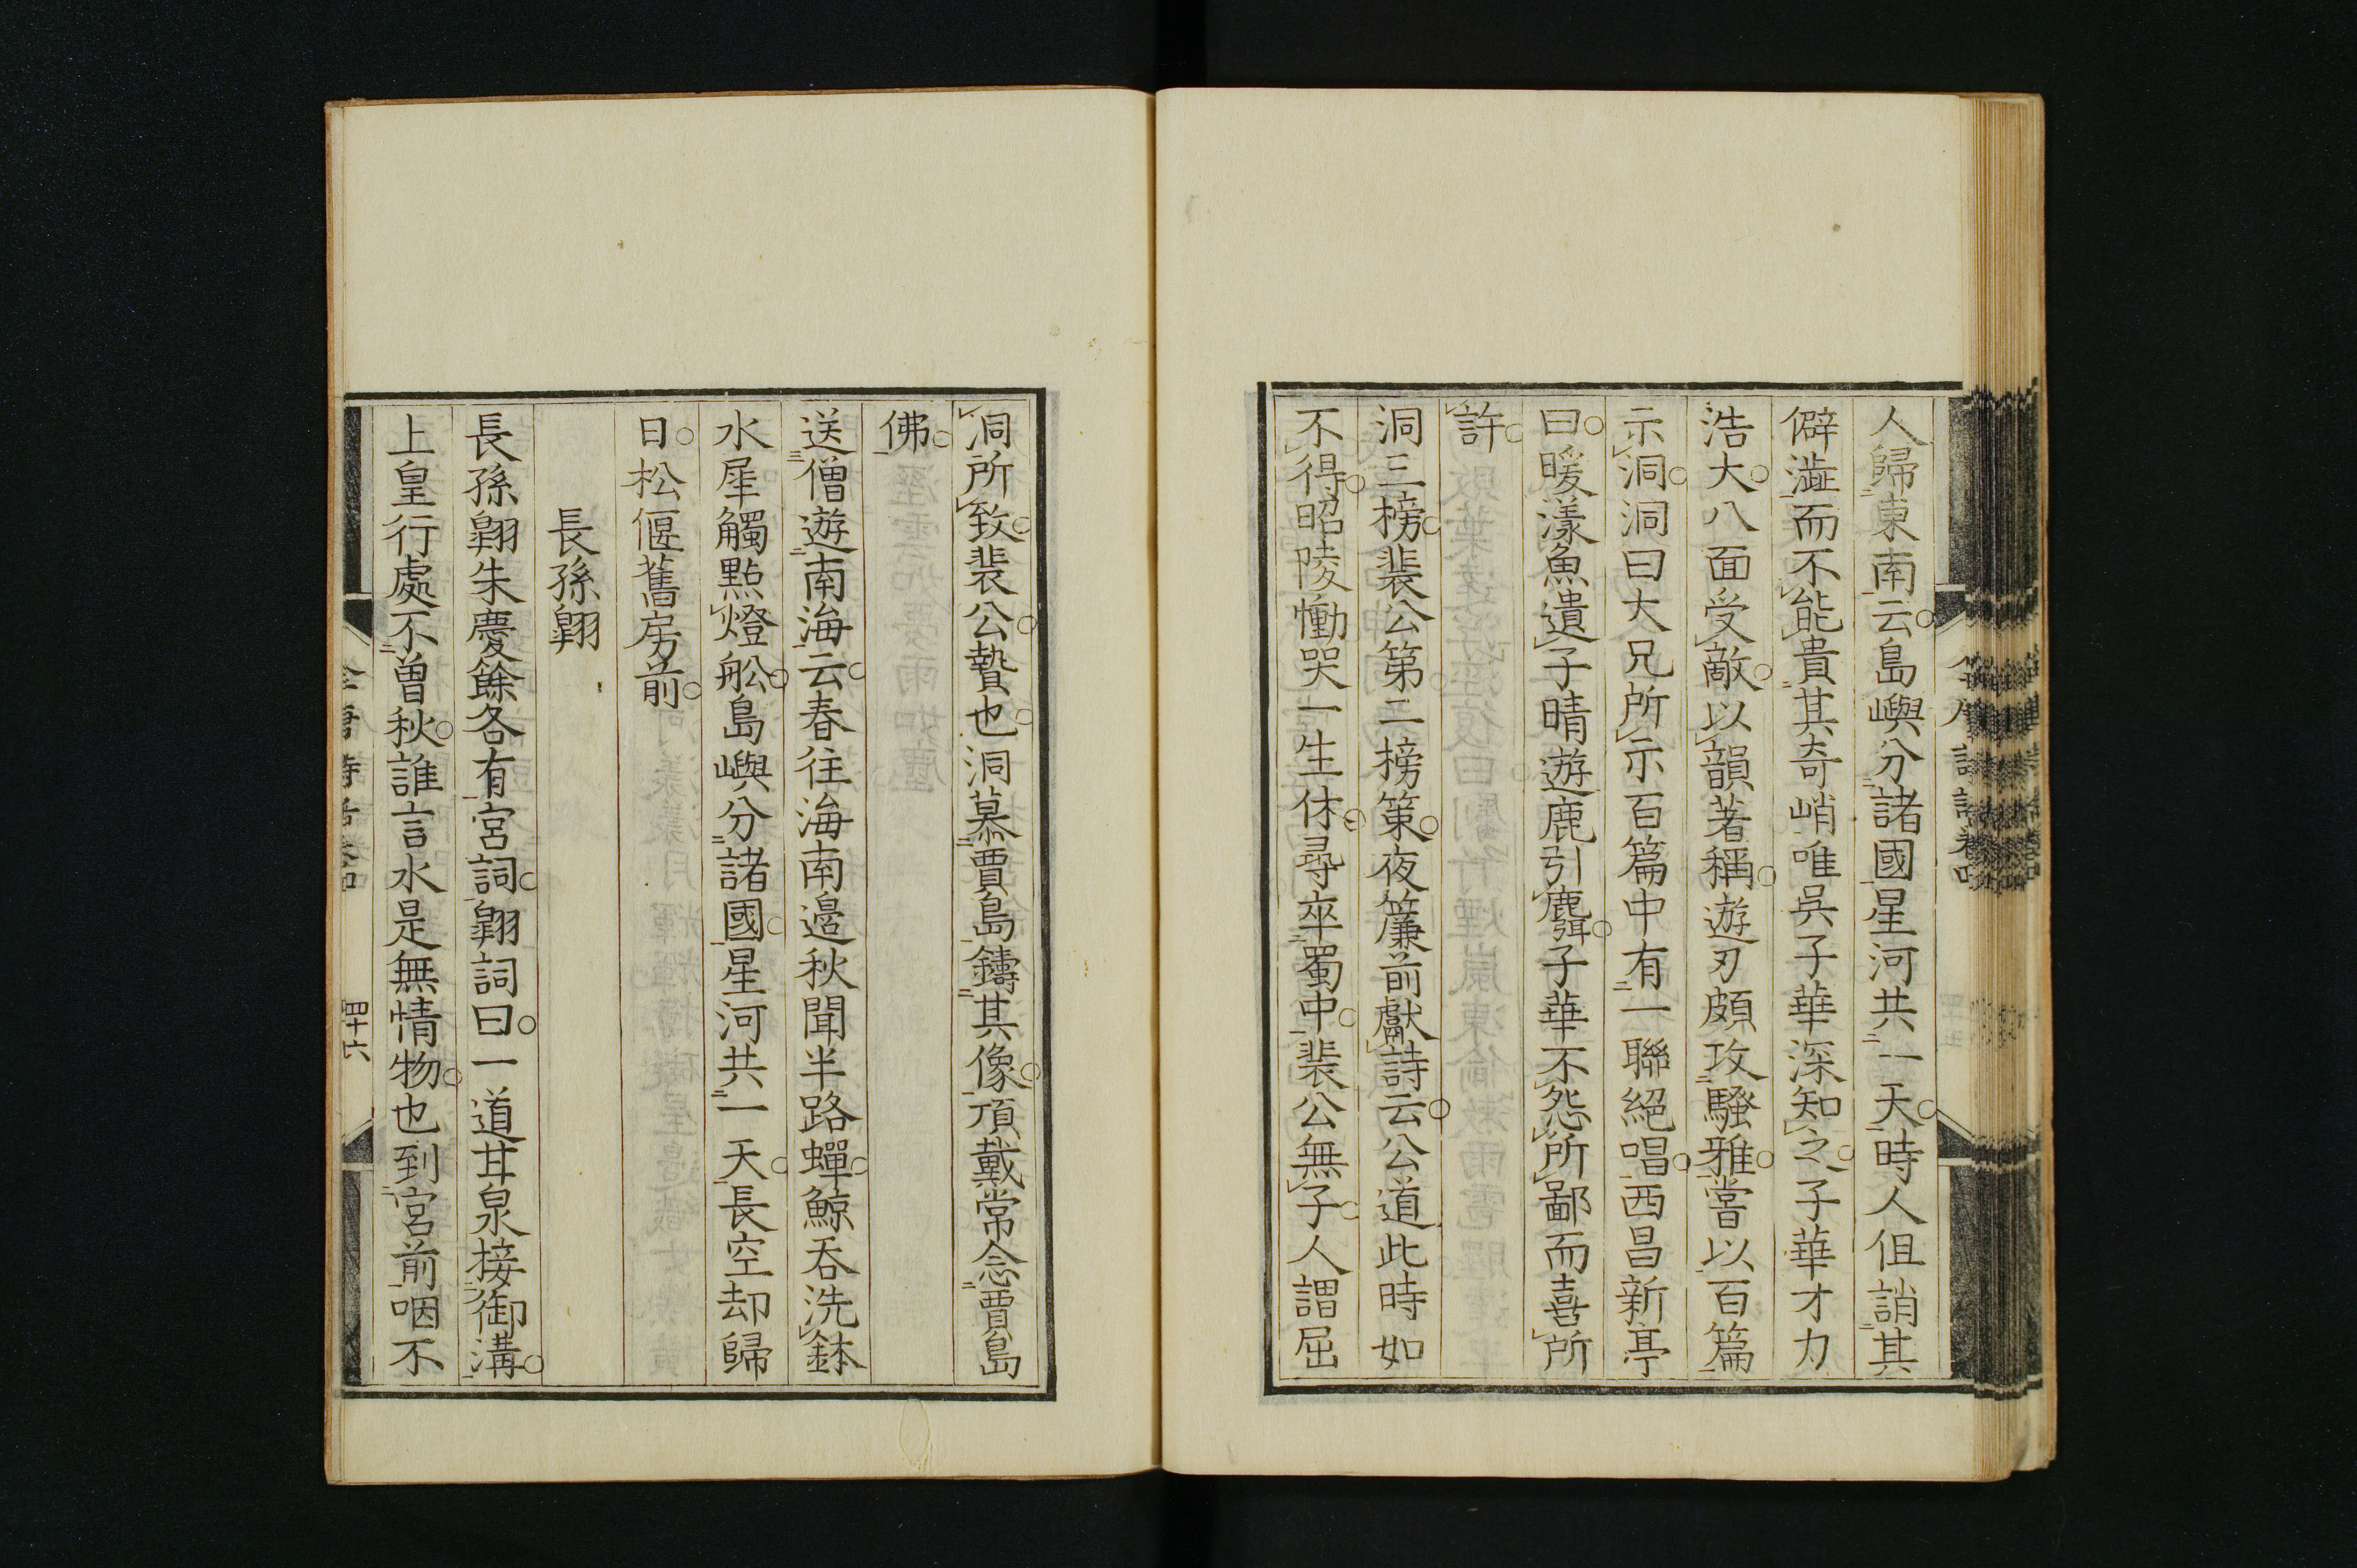 人歸東南云島嶼分諸國星河共一天時人但誚其
僻澁而不能貴其奇峭唯吳子華深知之子華才力
浩大八面受敵以韻著稱遊刃頗攻騷雅嘗以百篇
示洞洞曰大兄所示百篇中有一聯絕唱西昌新亭
曰暖漾魚遺子晴遊鹿引麛子華不怨所鄙而喜所
許
洞三榜裴公第二榜策夜簾前獻詩云公道此時如
不得昭陵慟哭一生休尋卒蜀中裴公無子人謂屈
洞所致裴公贄也洞慕賈島鑄其像頂戴常念賈島
佛
送僧遊南海云春往海南邉秋聞半路蟬鯨吞洗鉢
水犀觸點燈舩島嶼分諸國星河共一天長空却歸
日松偃舊房前
長孫翶
長孫翶朱慶餘各有宮詞翶詞曰一道甘泉接御溝
上皇行處不曾秋誰言水是無情物也到宮前咽不
全唐詩話卷四
四十六